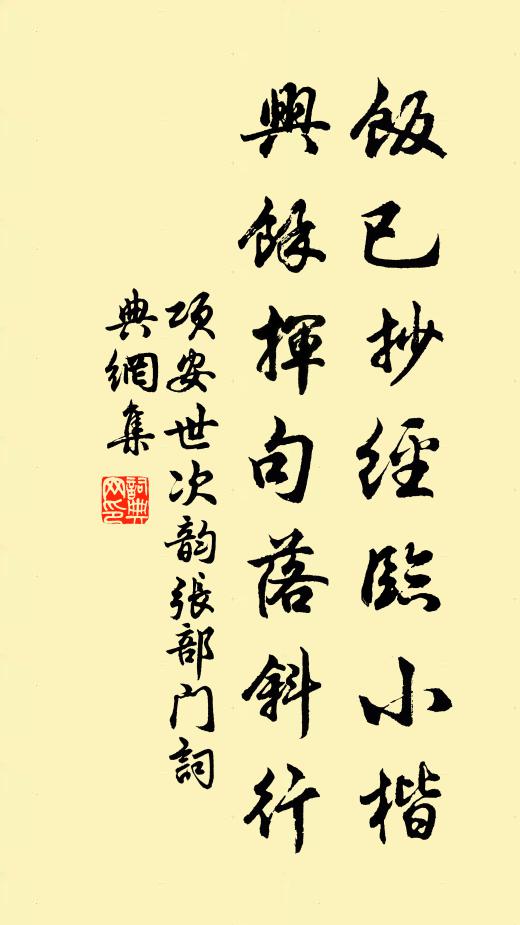 飯已抄經臨小楷
興餘揮句落斜行
項安世次韵張部门詞
典網集
詞典网印